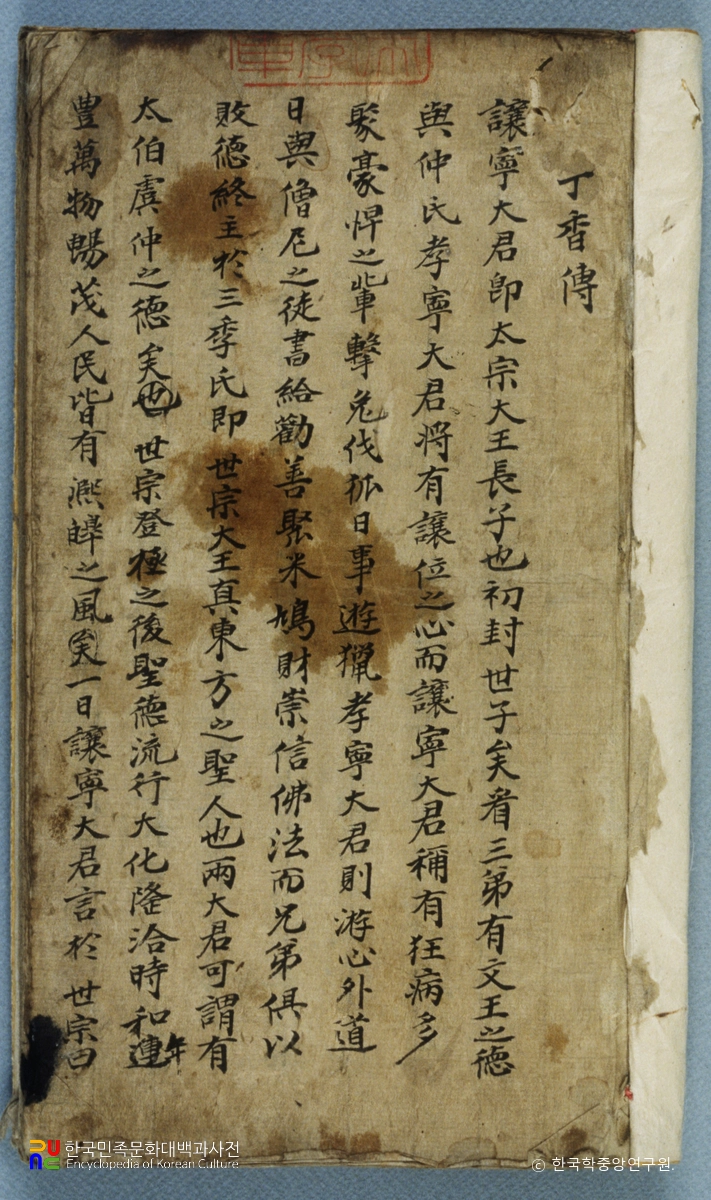 丁香傳
讓寧大君卽太宗大王長子也初封世子矣看三第有文王之德
與仲氏孝寧大君將有讓位之心而讓寧大君稱有狂病多
聚豪悍之輩擊兎伐狐日事遊獵孝寧大君則游心外道
日與僧尼之徒書給勸善聚米鳩財崇信佛法而兄第俱以
敗德終主於三季氏卽世宗大王真東方之聖人也兩大君可謂有
太伯虞仲之德矣也世宗登極之後聖德流行大化隆洽時和年
豊萬物暢茂人民皆有凞皞之風矣一日讓寧大君言於世宗曰
한국민족문화대백과사전
Encyclopedia of Korean Culture
© 한국학중앙연구원.